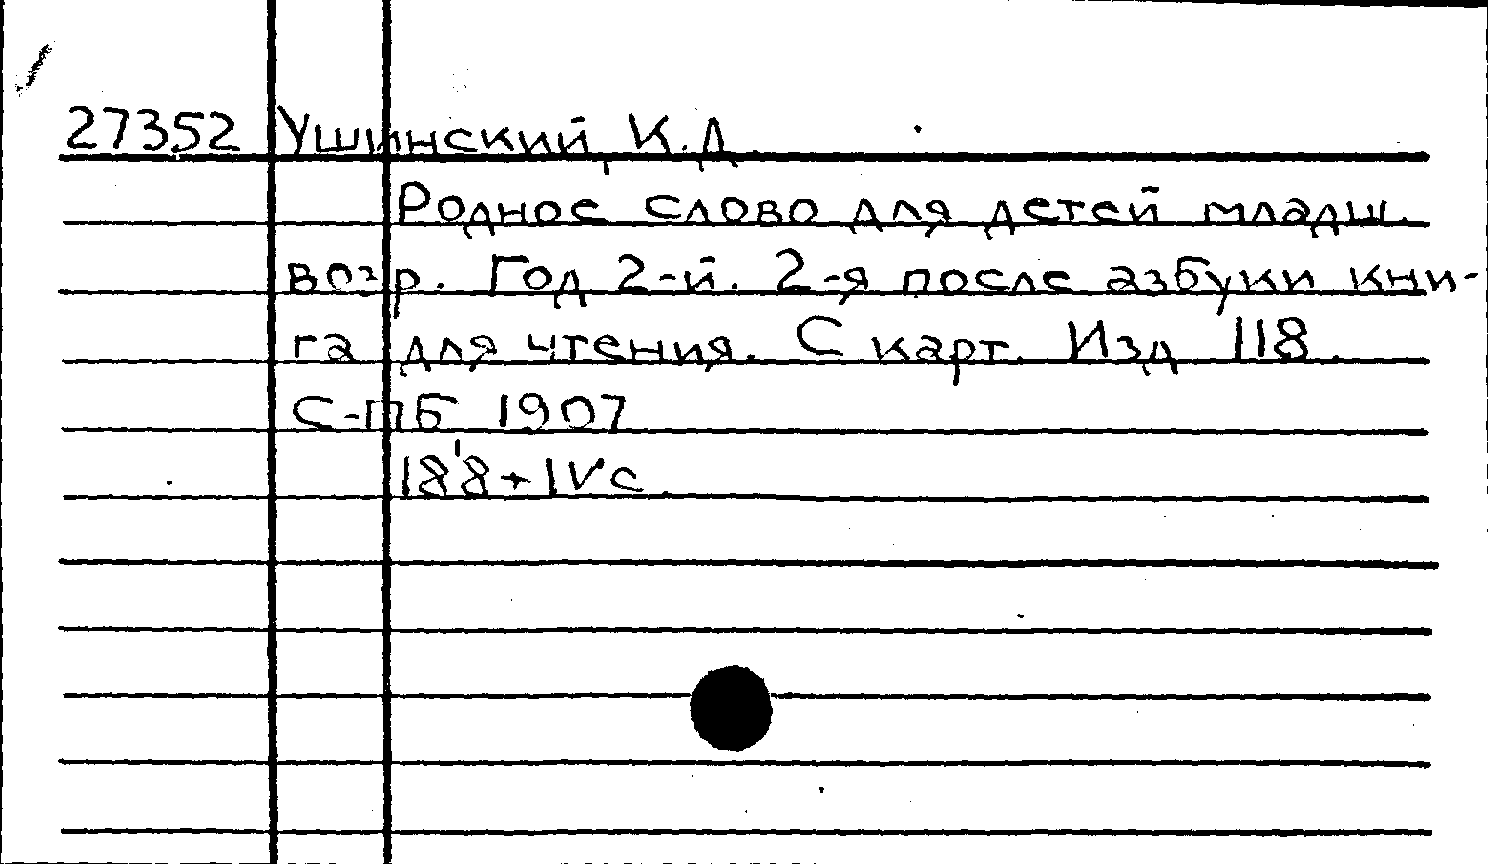 27352 Ушинский, К.Д.
Родное слово для детей младш.
возр. Год 2-й. 2-я после азбуки кни-
га для чтения. С карт. Изд 118.
С-ПБ 1907
188+IV с.